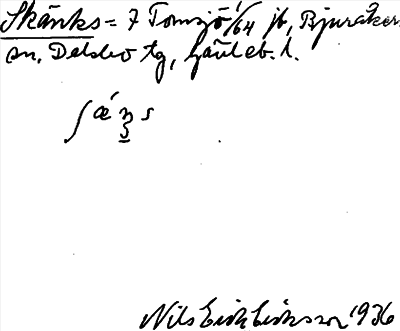 Skänks = 7 Tomsjö 1/64 jb, Bjuråkers
sn, Delsbo tg, Gävleb. l.
ʃǽŋs
Nils Erik Eriksson 1936